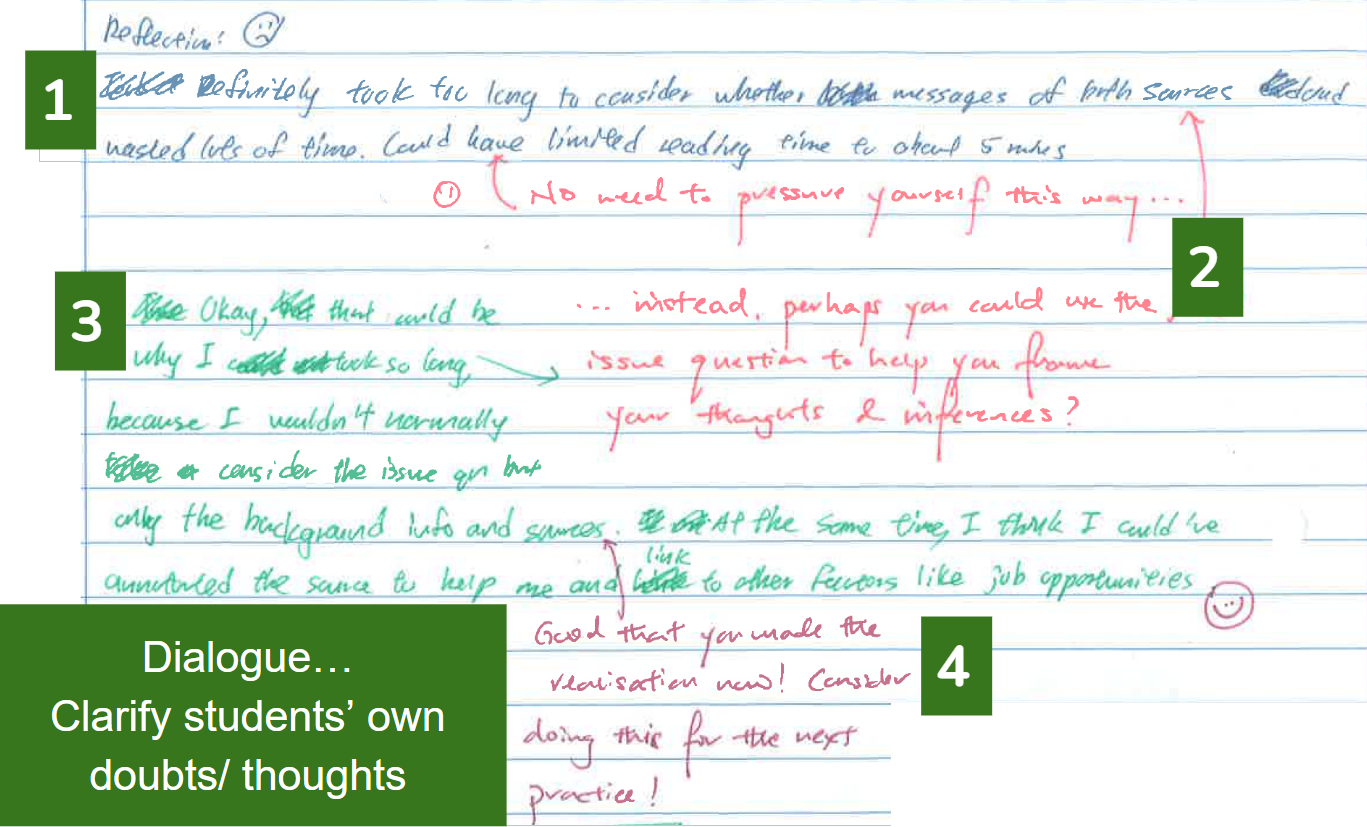 Reflection:
1
Definitely took too long to consider whether messages of both sources and
wasted lots of time. Could have limited reading time to about 5 mins
① No need to pressure yourself this way...
2
3
Okay, that could be
why I took so long,
because I wouldn't normally
consider the issue qn but
... instead, perhaps you could use the
issue question to help you frame
your thoughts & inferences?
only the background info and sources. At the same time, I think I could've
annotated the source to help me and link to other factors like job opportunities
Good that you made the
realisation now! Consider
doing this for the next
practice!
4
Dialogue...
Clarify students' own
doubts/ thoughts